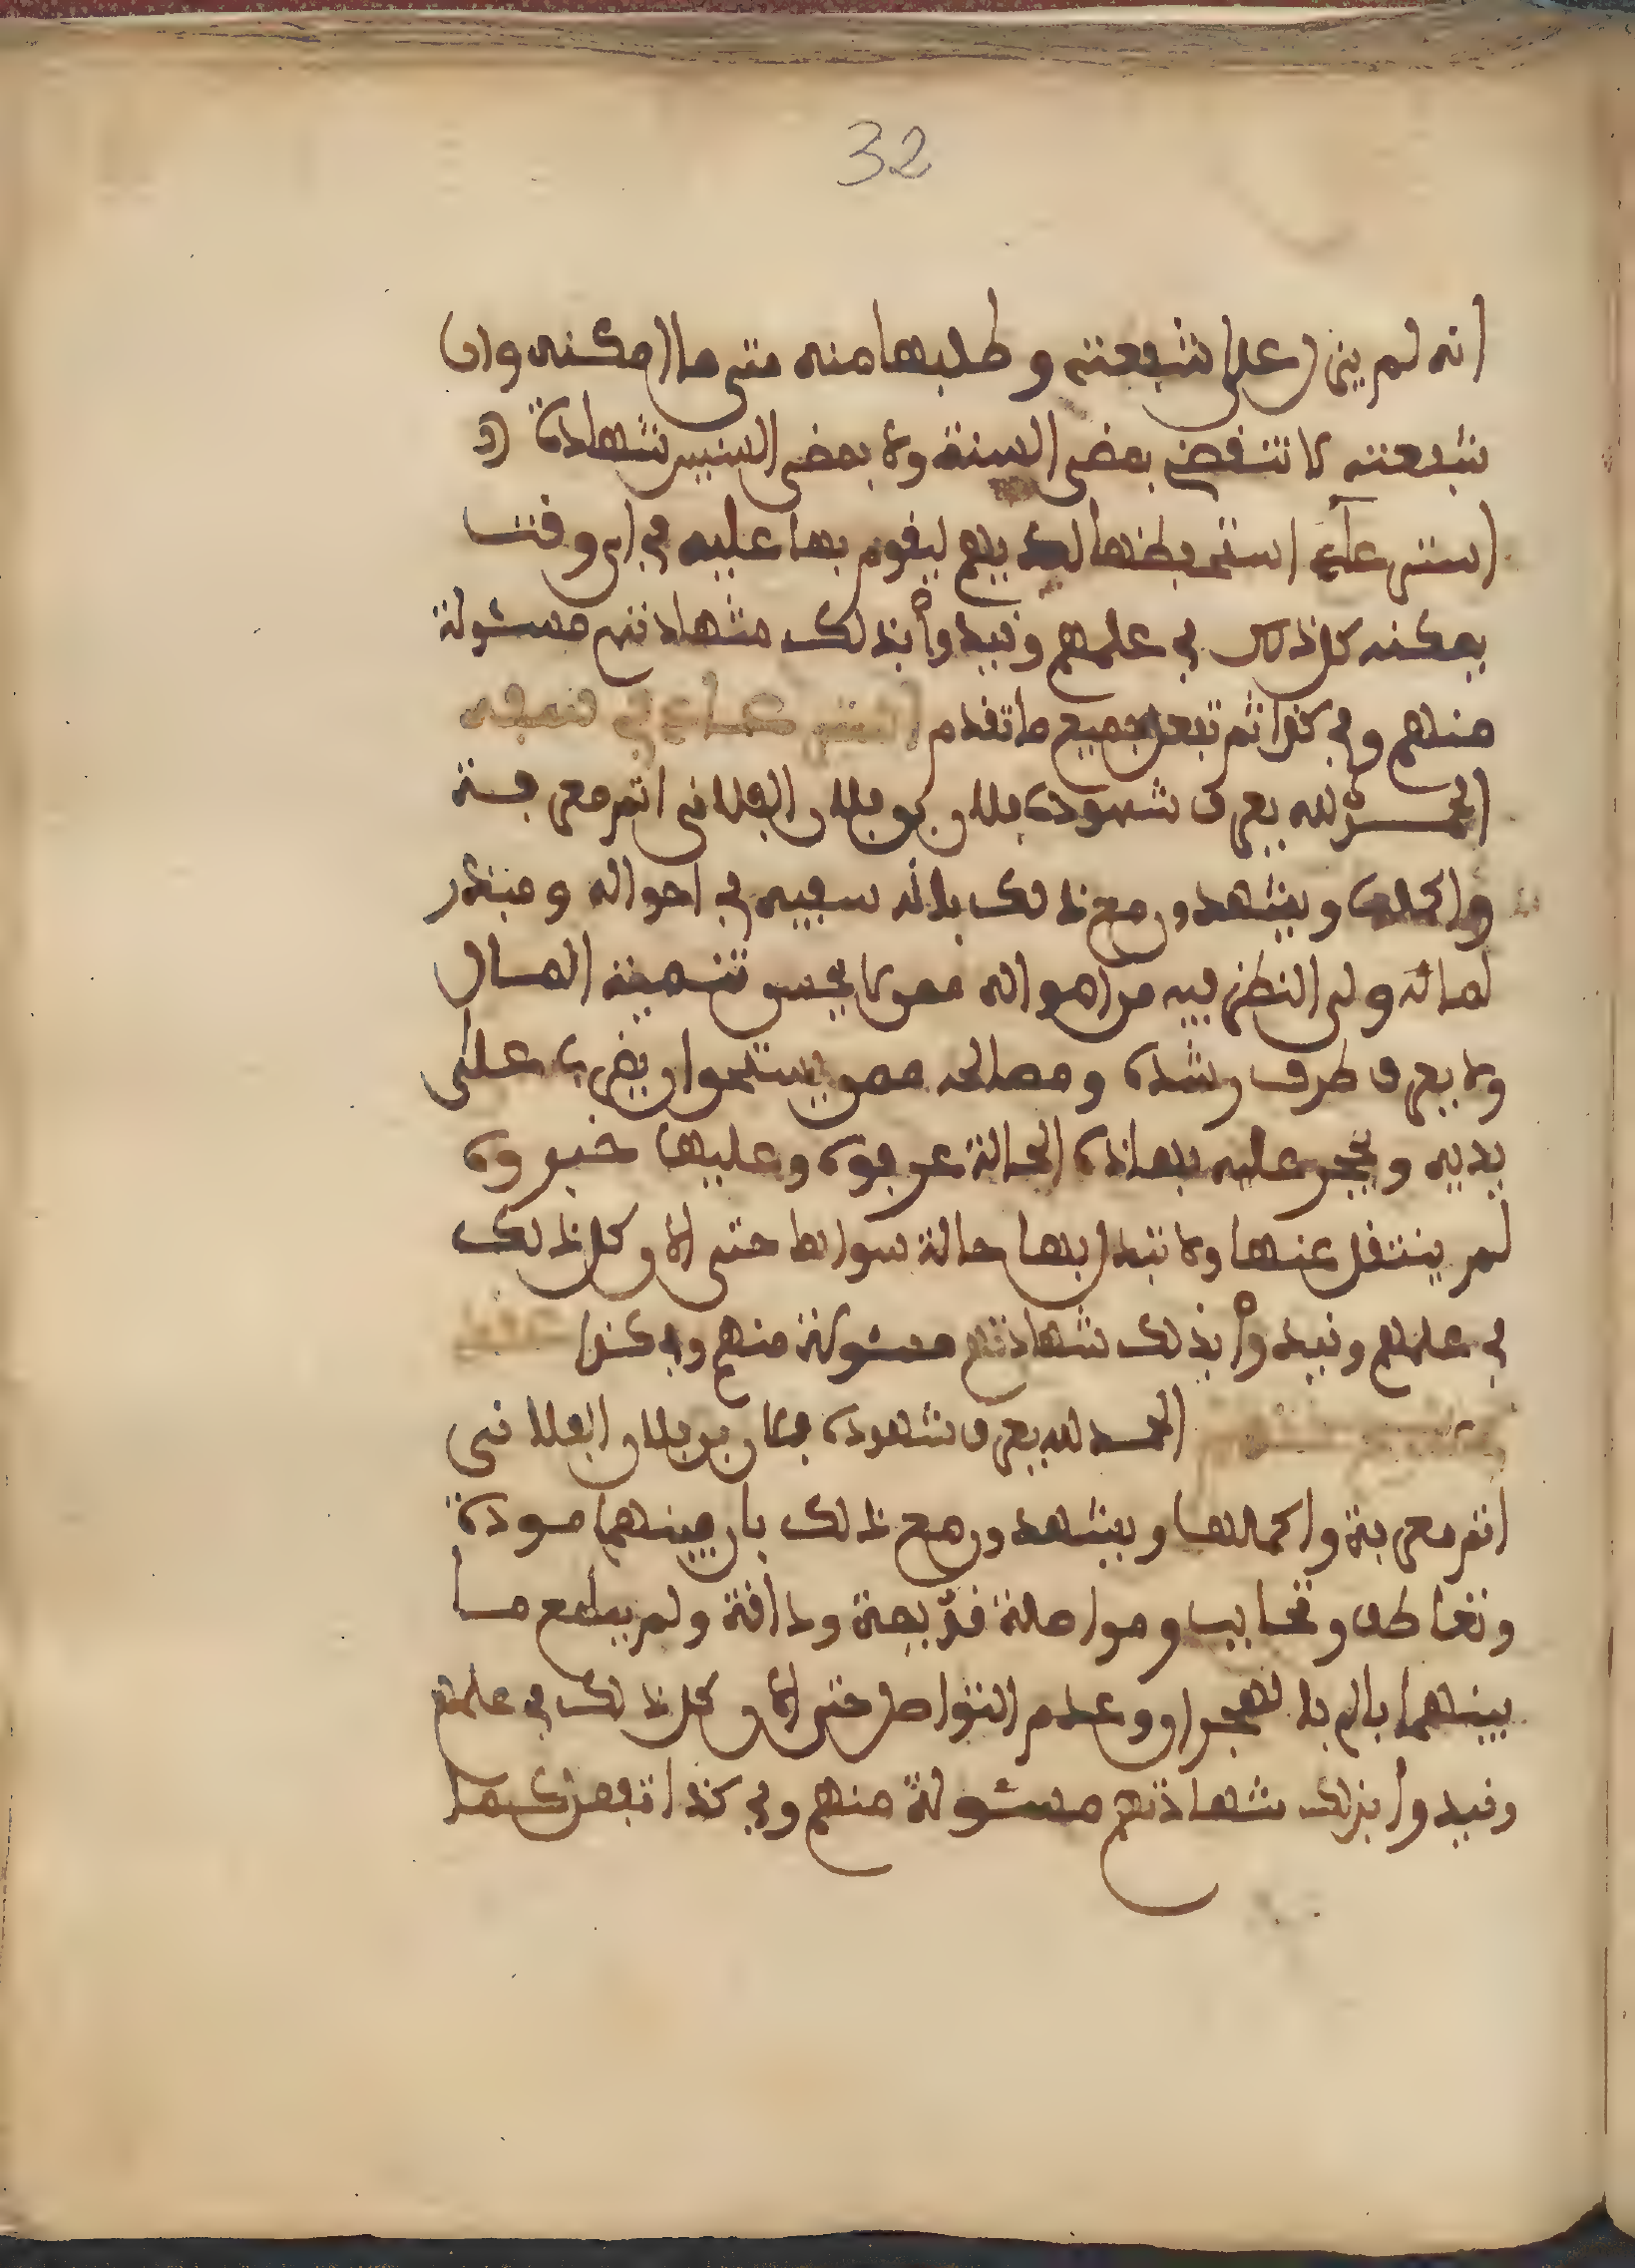 32
انه لم يزل على شفعته وطلبها منه متى ما امكنه وان
شفعته لا تنفض بمضي السنة ولا بمضي السنين شهادة
استرعاء استحفظها لديهم ليقوم بها عليه في اي وقت
يمكنه كل ذلك في علمهم وقيدوا بذلك شهادتهم مسئولة
منهم وفي كذا ثم تفعل بجميع ما تقدم استرعاء في سفيه
الحمد لله يعرف شهوده فلان بن فلان الفلاني اتم معرفة
واكملها ويشهدون مع ذلك بانه سفيه في احواله ومبذر
لماله ولي النظر فيه من امواله ممن لا يحسن تنمية المال
ولا يعرف طرف رشده ومصالحه ممن يستحق ان يضرب على
يديه ويحجر عليه بهاذه الحالة عرفوه وعليها خبروه
لم ينتقل عنها ولا تبدل بها حالة سواها حتى الان وكل ذلك
في علمهم وقيدوا بذلك شهادتهم مسئولة منهم وفي كذا
الحمد لله يعرف شهوده فلان بن فلان الفلاني
اتم معرفة واكملها ويشهدون مع ذلك بان بينهما مودة
وتعاطف وتحابب ومواصلة قديمة وصداقة ولم يقطع ما
بينهما بالهجران وعدم التواصل حتى الان كل ذلك في علمهم
وقيدوا بذلك شهادتهم مسئولة منهم وفي كذا تفعل كما